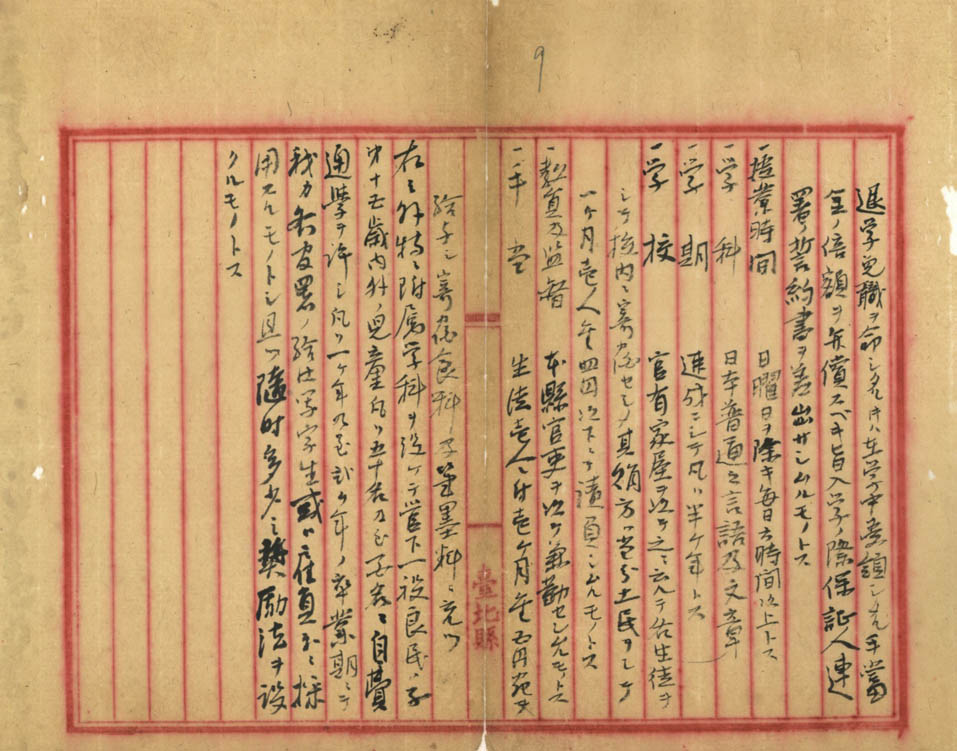 9
退学免職ヲ命シタルトキハ在学中受領シタル手当
金ノ倍額ヲ弁償スベキ旨入学ノ際保証人連
署ノ誓約書ヲ差出サシムルモノトス
一授業時間 日曜日ヲ除キ毎日六時間以上トス
一学科 日本普通之言語及文章
一学期 速成ニシテ凡ソ半ヶ年トス
一学校 官有家屋ヲ以テ之ニ充テ各生徒ヲ
シテ校内ニ寄宿セシメ其賄方ハ土民ヲシテ
一ヶ月壱人金四円以下ニテ請負ハシムルモノトス
一教員及監督 本縣官吏ヲ以テ兼勤セシムルモノトス
一手当 生徒壱人ニ付壱ヶ月金五円宛ヲ
給予シ寄宿食料及筆墨料ニ充ツ
右之外特ニ附属学科ヲ設ケテ管下一般良民ノ子
弟十五歳内外ノ児童凡ソ五十名乃至百名ニ自費
通学ヲ許シ凡ソ一ヶ年乃至弐ヶ年ノ卒業期ニテ
我カ各官署ノ給仕写字生或ハ雇員等ニ採
用スルモノトシ且ツ随時多少之奨励法ヲ設
クルモノトス
臺北縣